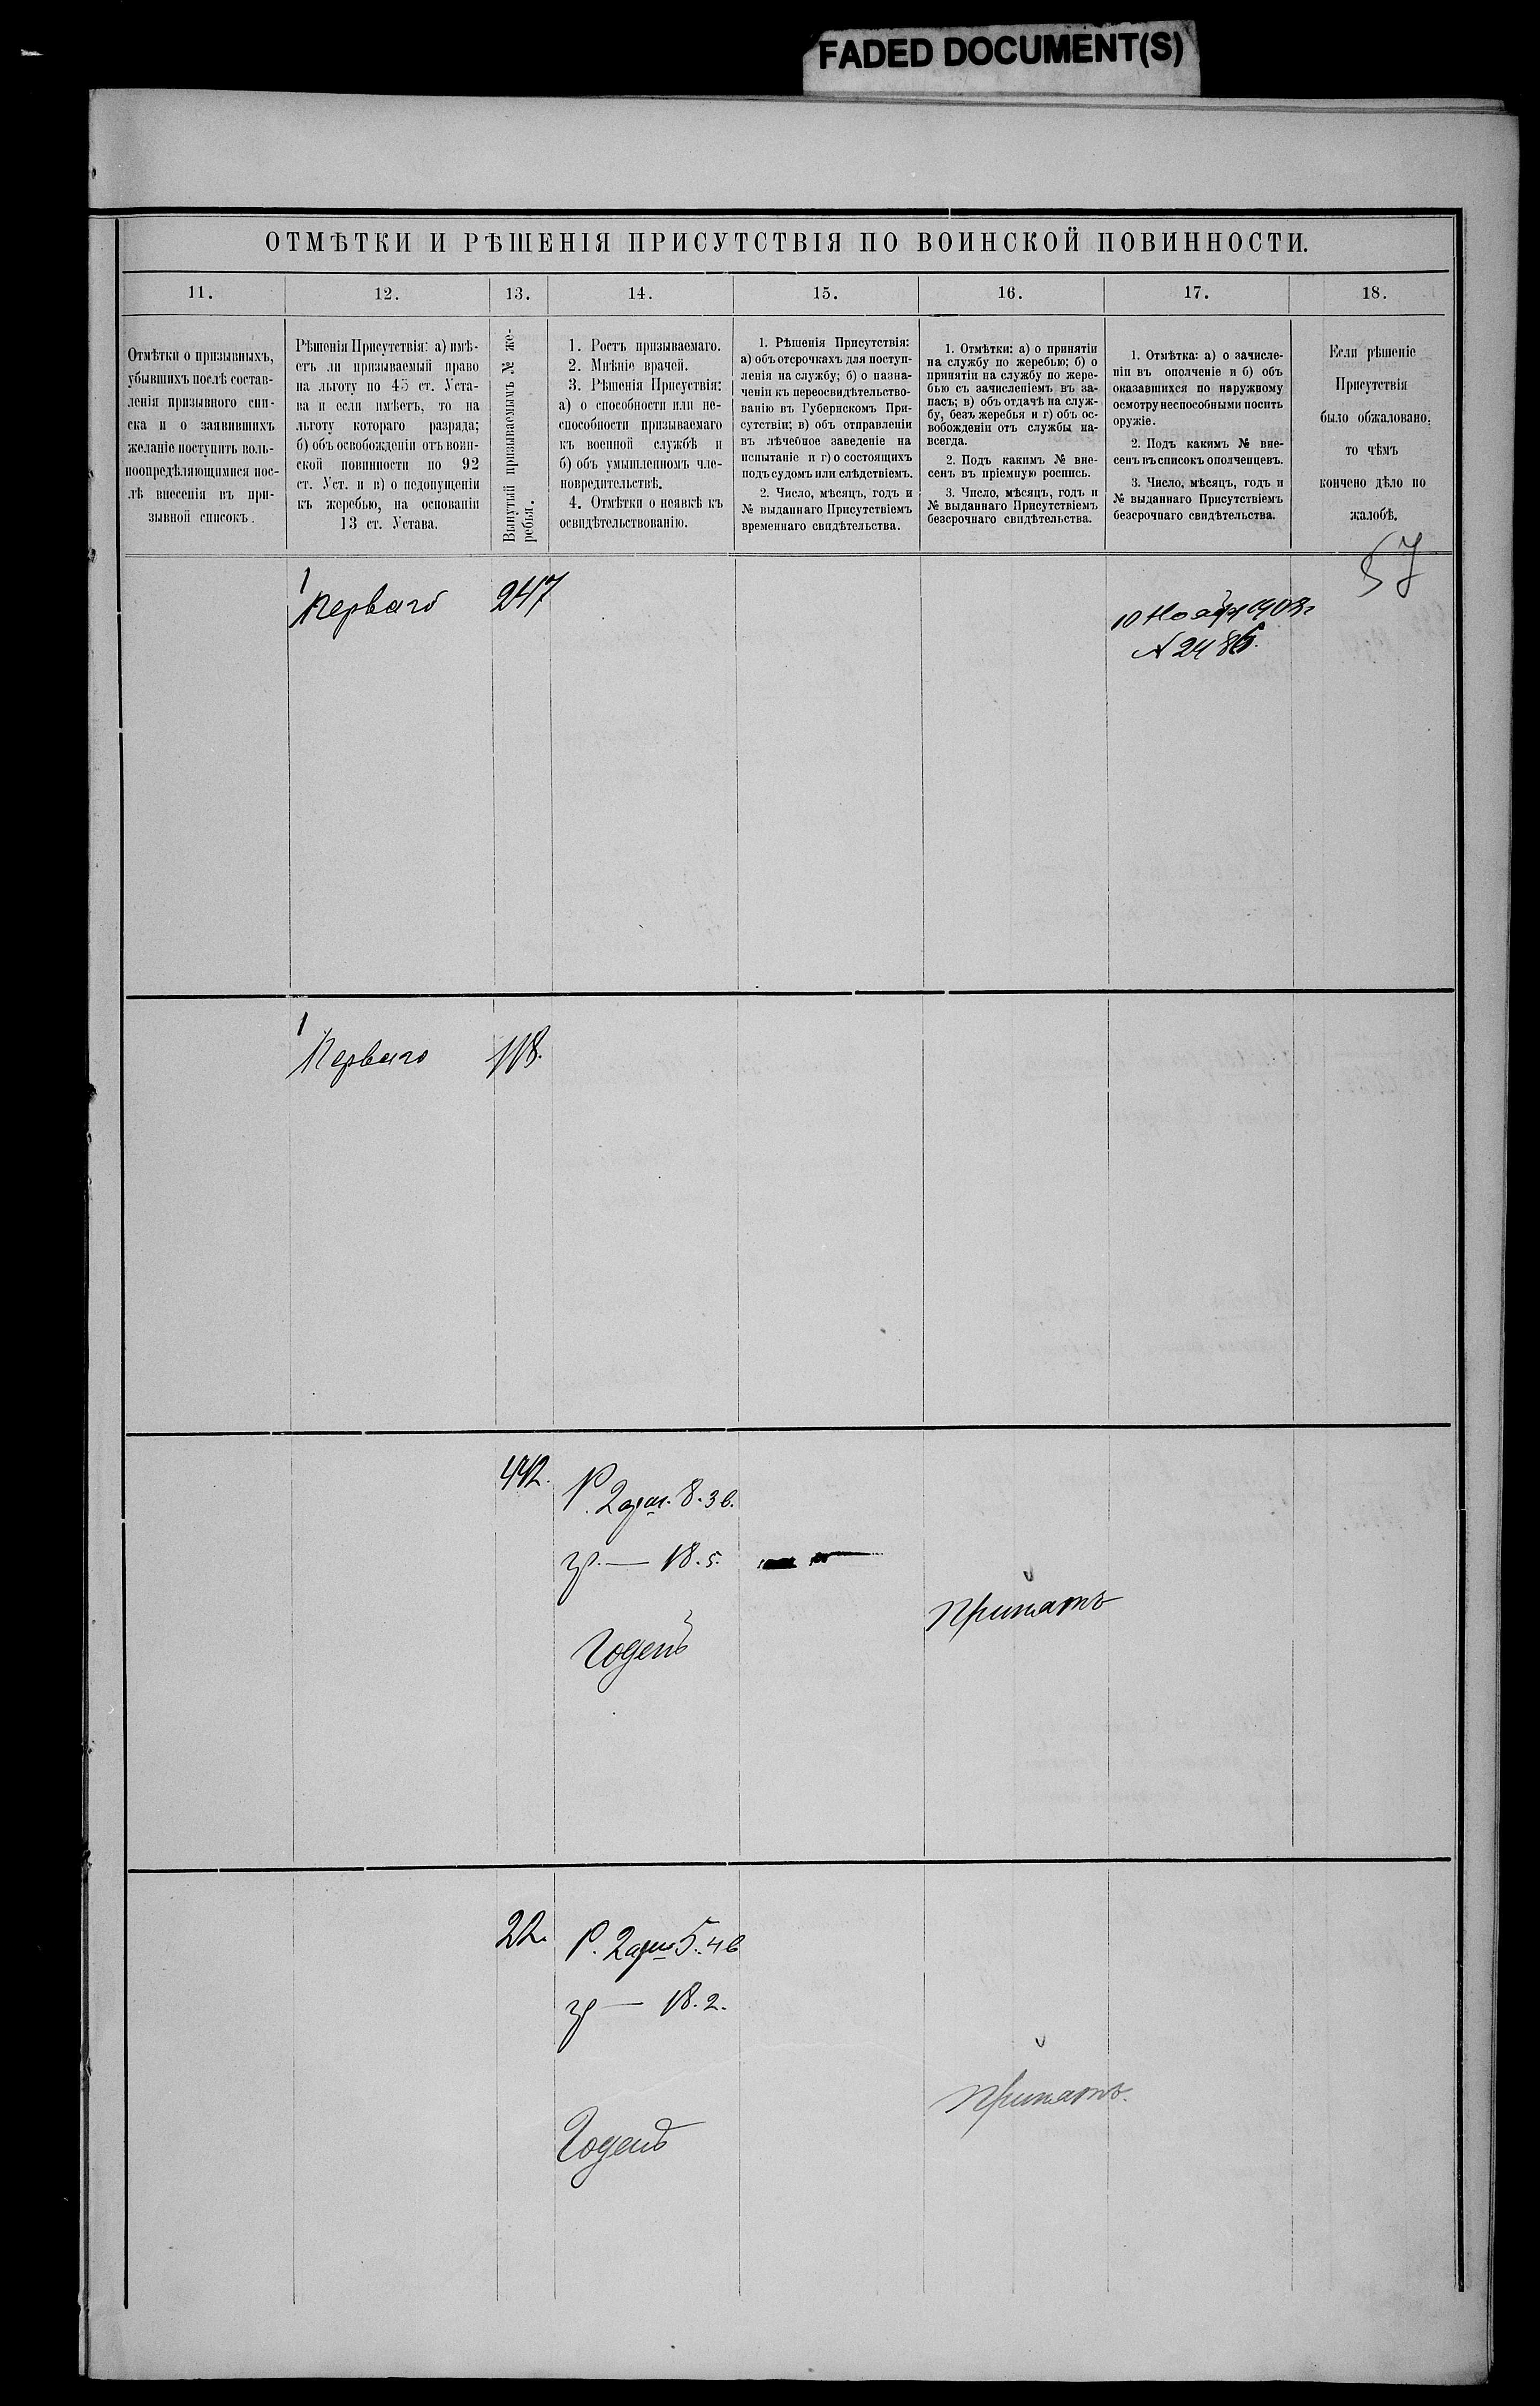 FADED DOCUMENT(S)
ОТМѢТКИ И РѢШЕНІЯ ПРИСУТСТВІЯ ПО ВОИНСКОЙ ПОВИННОСТИ.
11.
12.
13.
14.
15.
16.
17.
18.
Отмѣтки о призывныхъ,
убывшихъ послѣ состав-
ленія призывного спи-
ска и о заявившихъ
желаніе поступить воль-
ноопредѣляющимися пос-
лѣ внесенія въ при-
зывной списокъ.
Рѣшенія Присутствія: а) имѣ-
етъ ли призываемый право
на льготу по 45 ст. Уста-
ва и если имѣетъ, то на
льготу котораго разряда;
б) объ освобожденіи отъ воин-
ской повинности по 92
ст. Уст. и в) о недопущеніи
къ жеребью, на основаніи
13 ст. Устава.
Вынутый призываемымъ № же-
ребья.
1. Ростъ призываемаго.
2. Мнѣніе врачей.
3. Рѣшенія Присуствія:
а) о способности или не-
способности призываемаго
къ военной службѣ и
б) объ умышленномъ чле-
новредительствѣ.
4. Отмѣтки о неявкѣ къ
освидѣтельствованію.
1. Рѣшенія Присутствія:
а) объ отсрочкахъ для поступ-
ленія на службу; б) о назна-
ченіи къ переосвидѣтельство-
ванію въ Губернскомъ При-
сутствіи; в) объ отправленіи
въ лѣчебное заведеніе на
испытаніе и г) о состоящихъ
подъ судомъ или слѣдствіемъ.
2. Число, мѣсяцъ, годъ и
№ выданнаго Присутствіемъ
временнаго свидѣтельства.
1. Отмѣтки: а) о принятіи
на службу по жеребью; б) о
принятіи на службу по жере-
бью съ зачисленіемъ въ за-
пасъ; в) объ отдачѣ на служ-
бу, безъ жеребья и г) объ ос-
вобожденіи отъ службы на-
всегда.
2. Подъ какимъ № вне-
сенъ въ пріемную роспись.
3. Число, мѣсяцъ, годъ и
№ выданнаго Присутствіемъ
безсрочнаго свидѣтельства.
1. Отмѣтка: а) о зачисле-
ніи въ ополченіе и б) объ
оказавшихся по наружному
осмотру неспособными носить
оружіе.
2. Подъ какимъ № вне-
сенъ въ списокъ ополченцевъ.
3. Число, мѣсяцъ, годъ и
№ выданнаго Присутствіемъ
безсрочнаго свидѣтельства.
Если рѣшеніе
Присутствія
было обжаловано,
то чѣмъ
кончено дѣло по
жалобѣ.
57
1
Перваго
247
10 Ноября 1903 г
№ 2486.
1
Перваго
118.
442.
Р. 2 арш. 8. 3 в.
гр. — 18. 5.
Годенъ
Принятъ
22.
Р. 2 арш 5. 4 в
гр — 18. 2.
Годенъ
Принятъ.